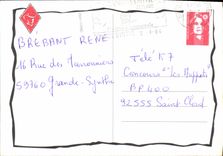 BREBANT RENÉ
16 Rue des
59760 Grande-Synthe
Télé K7
Concours "les Muppets"
BP 400
92555 Saint Cloud